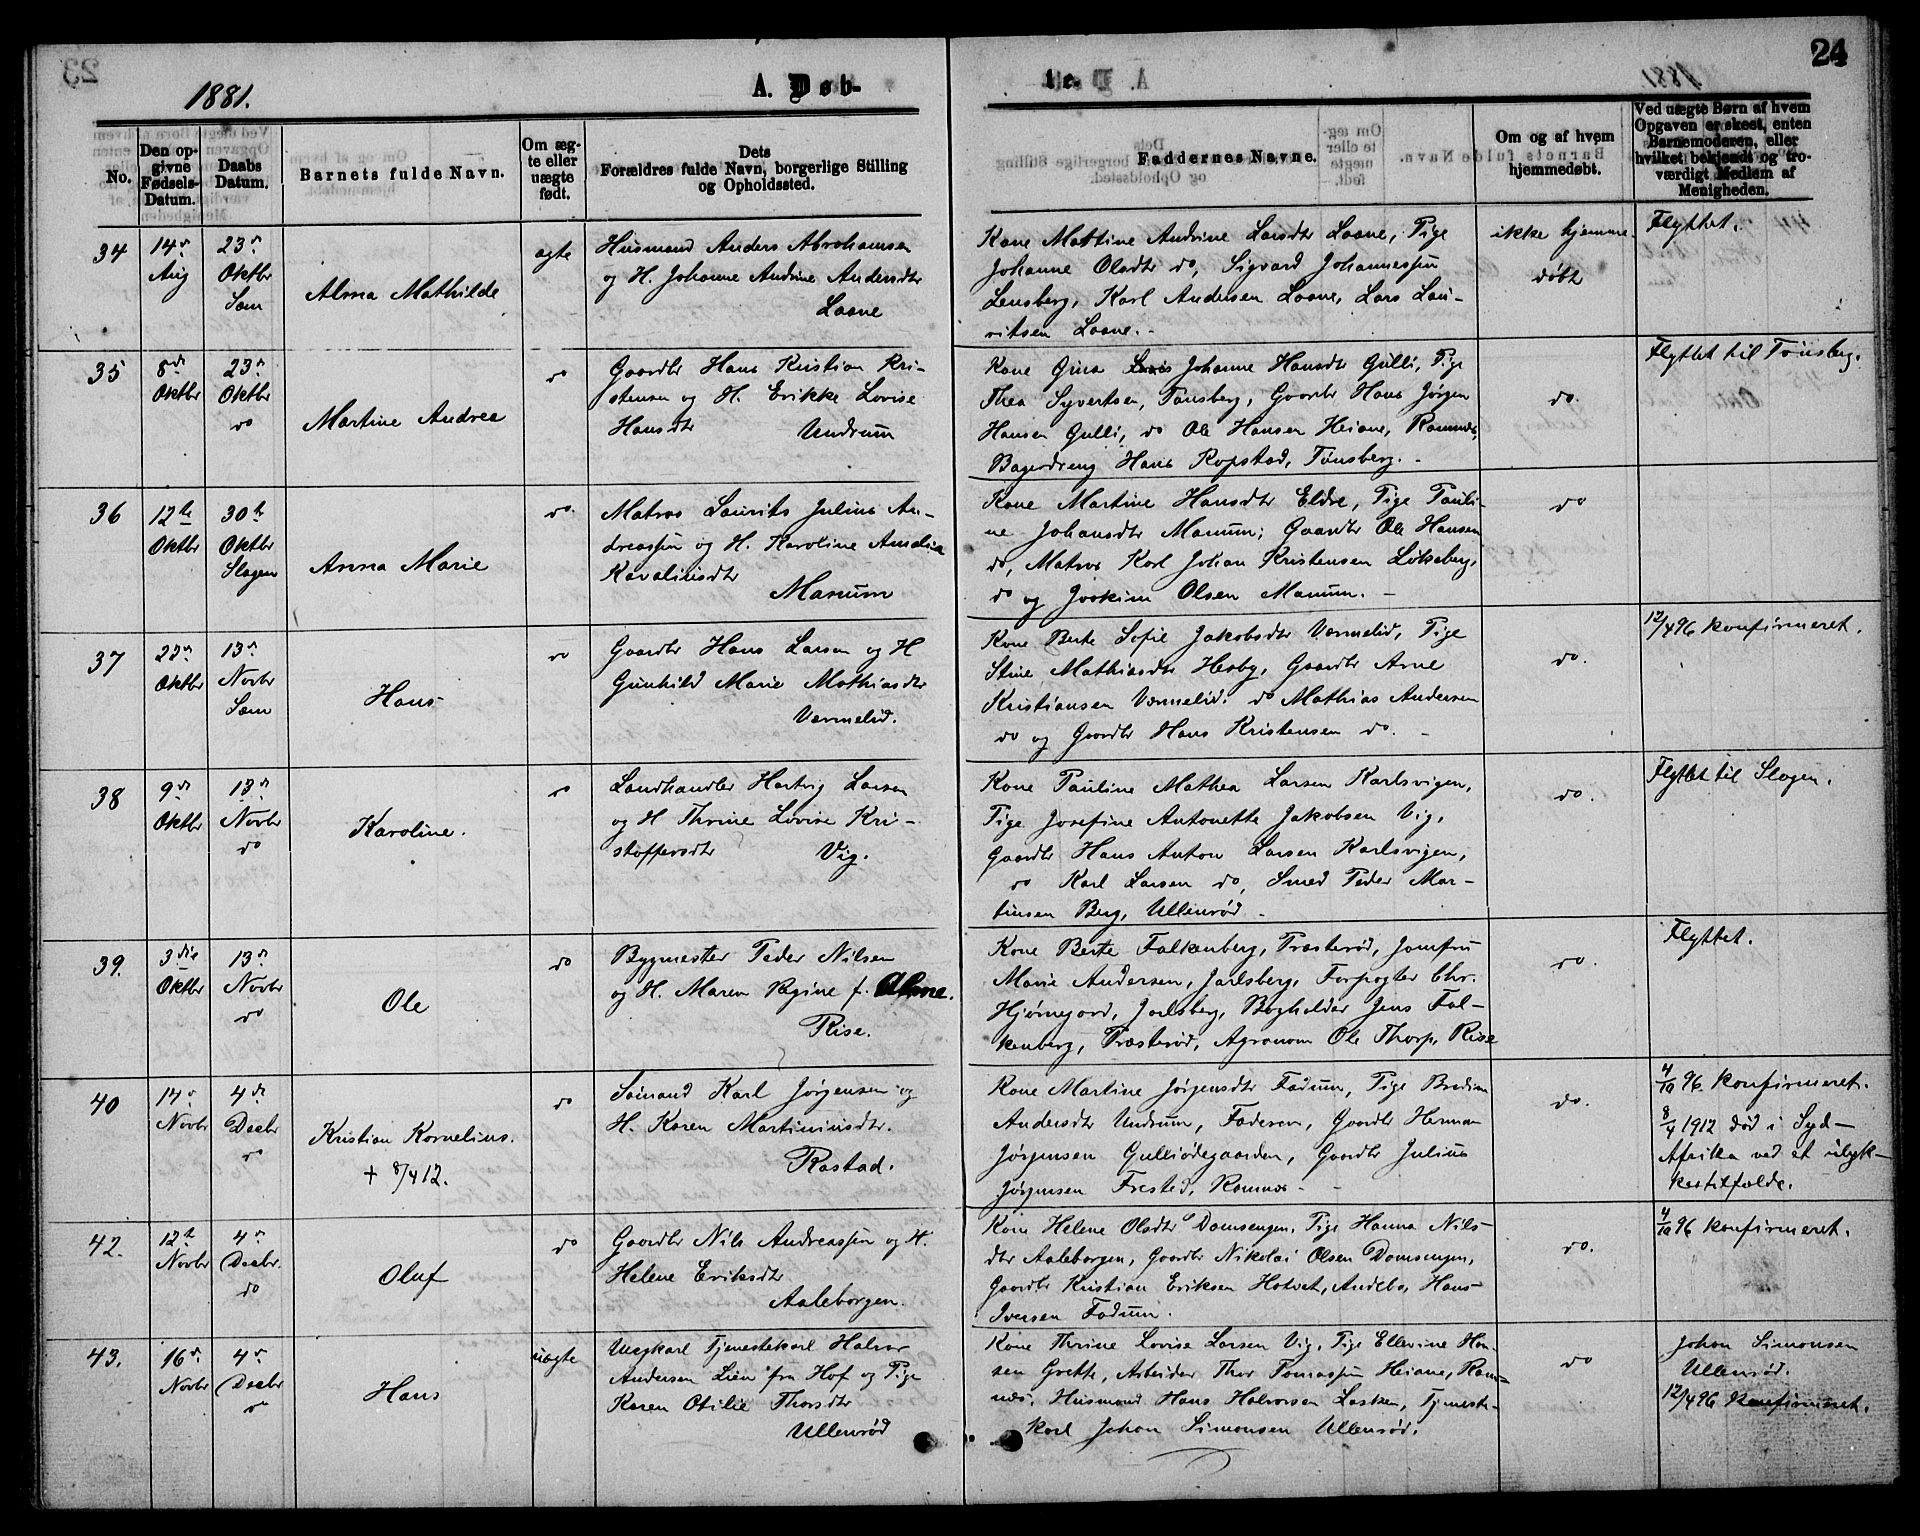 1881.
A. Døb-
te.
24
No.
Den op-
givne
Fødsels-
Datum.
Daabs
Datum.
Barnets fulde Navn.
Om æg-
te eller
uægte
født.
Dets
Forældres fulde Navn, borgerlige Stilling
og Opholdssted.
Faddernes Navne.
Om og af hvem
hjemmedøbt.
Ved uægte Børn af hvem
Opgaven er skeet, enten
Barnemoderen, eller
hvilket bekjendt og tro-
værdigt Medlem af
Menigheden.
34
14de
Aug
23de
Oktbr
Sem
Alma Mathilde
ægte
Husmand Anders Abrahamsen
og H. Johanne Andrine Andersdtr
Laane
Kone Mattine Andrine Larsdtr Laane, Pige
Johanne Olsdtr do, Sigvard Johannessen
Lensberg, Karl Andersen Laane, Lars Lau-
ritsen Laane. -
ikke hjemme-
døbt
Flyttet.
35
8de
Oktbr
23de
Oktbr
do
Martine Andrea
do
Gaardbr Hans Kristian Kri-
stensen og H. Erikke Lovise
Hansdtr Undrum
Kone Gina Johanne Hansdtr Gulli, Pige
Thea Syvertsen, Tønsberg, Gaardbr Hans Jørgen
Hansen Gulli, do Ole Hansen Heiane, Ramnæs,
Bagerdreng Hans Ropstad, Tønsberg. -
do.
Flyttet til Tønsberg.
36
12te
Oktbr
30te
Oktbr
Slagen
Anna Marie
do.
Matros Laurits Julius An-
dreassen og H. Karoline Amalie
Karaliusdtr
Manum
Kone Martine Hansdtr Eldre, Pige Pauli-
ne Johansdtr Manum; Gaardbr Ole Hansen
do, Matros Karl Johan Kristensen Løkeberg,
do og Joakim Olsen Manum. -
do
37
22de
Oktbr
13de
Novbr
Sem
Hans
do
Gaardbr Hans Larsen og H
Gunhild Marie Mathiasdtr
Værmelid.
Kone Berte Sofie Jakobsdtr Værmelid, Pige
Stine Mathiasdtr Hesby, Gaardbr Arne
Kristiansen Værmelid. do Mathias Andersen
do og Gaardbr Hans Kristensen do. -
do.
12/4 96 konfirmeret.
38
9de
Oktbr
13de
Novbr
do
Karoline.
do
Landhandler Hartvig Larsen
og H Thrine Lovise Kri-
stoffersdtr Vig.
Kone Pauline Mathea Larsen Karlsvigen,
Pige Josefine Antonette Jakobsen Vig,
Gaardbr Hans Anton Larsen Karlsvigen,
do Karl Larsen do, Smed Peder Mar-
tinsen Berg, Ullenrød -
do.
Flyttet til Slagen.
39.
3die
Oktbr
13de
Novbr
do
Ole
do
Bygmester Peder Nilsen
og H. Maren Regine f.
Rise.
Kone Berte Falkenberg, Præsterød, Jomfru
Marie Andersen, Jarlsberg, Forpagter Chr.
Hjørnegard, Jarlsberg, Bogholder Jens Fal-
kenberg, Præsterød, Agronom Ole Thorp, Rise
do.
Flyttet.
40
14de
Novbr
4de
Decbr
do
Kristian Kornelius.
+ 8/4 12.
do
Sømand Karl Jørgensen og
H. Karen Martiniusdtr.
Rastad.
Kone Martine Jørgensdtr Fadum, Pige Bredine
Andersdtr Undrum, Faderen, Gaardbr Herman
Jørgensen Gulliødegaarden, Gaardbr Julius
Jørgensen Frested, Ramnæs -
do.
4/10 96 konfirmeret.
8/4 1912 død i Syd-
Afrika ved et ulyk-
kestilfælde.
42.
12te
Novbr
4de
Decbr.
do
Oluf
do
Gaardbr Nils Andreassen og H.
Helene Eriksdtr
Aaleborgen.
Kone Helene Olsdtr Domsengen, Pige Hanna Nils-
dtr Aaleborgen, Gaardbr Nikolai Olsen Domsengen,
Gaardbr Kristian Eriksen Hotvet, Andebo, Hans
Iversen Fadum.
do.
4/10 96 konfirmeret.
43.
16de
Novbr
4de
Decbr
do
Hans
uægte
Ungkarl Tjenestekarl Halvor
Andersen Lien fra Hof og Pige
Karen Otilie Thorsdtr
Ullenrød
Kone Thrine Lovise Larsen Vig, Pige Ellevine Han-
sen Grette, Arbeider Thor Tomassen Heiane, Ram-
næs, Husmand Hans Halvorsen Lasken, Tjeneste-
karl Johan Simonsen Ullenrød.
do
Johan Simonsen
Ullenrød.
12/4 96 konfirmeret.